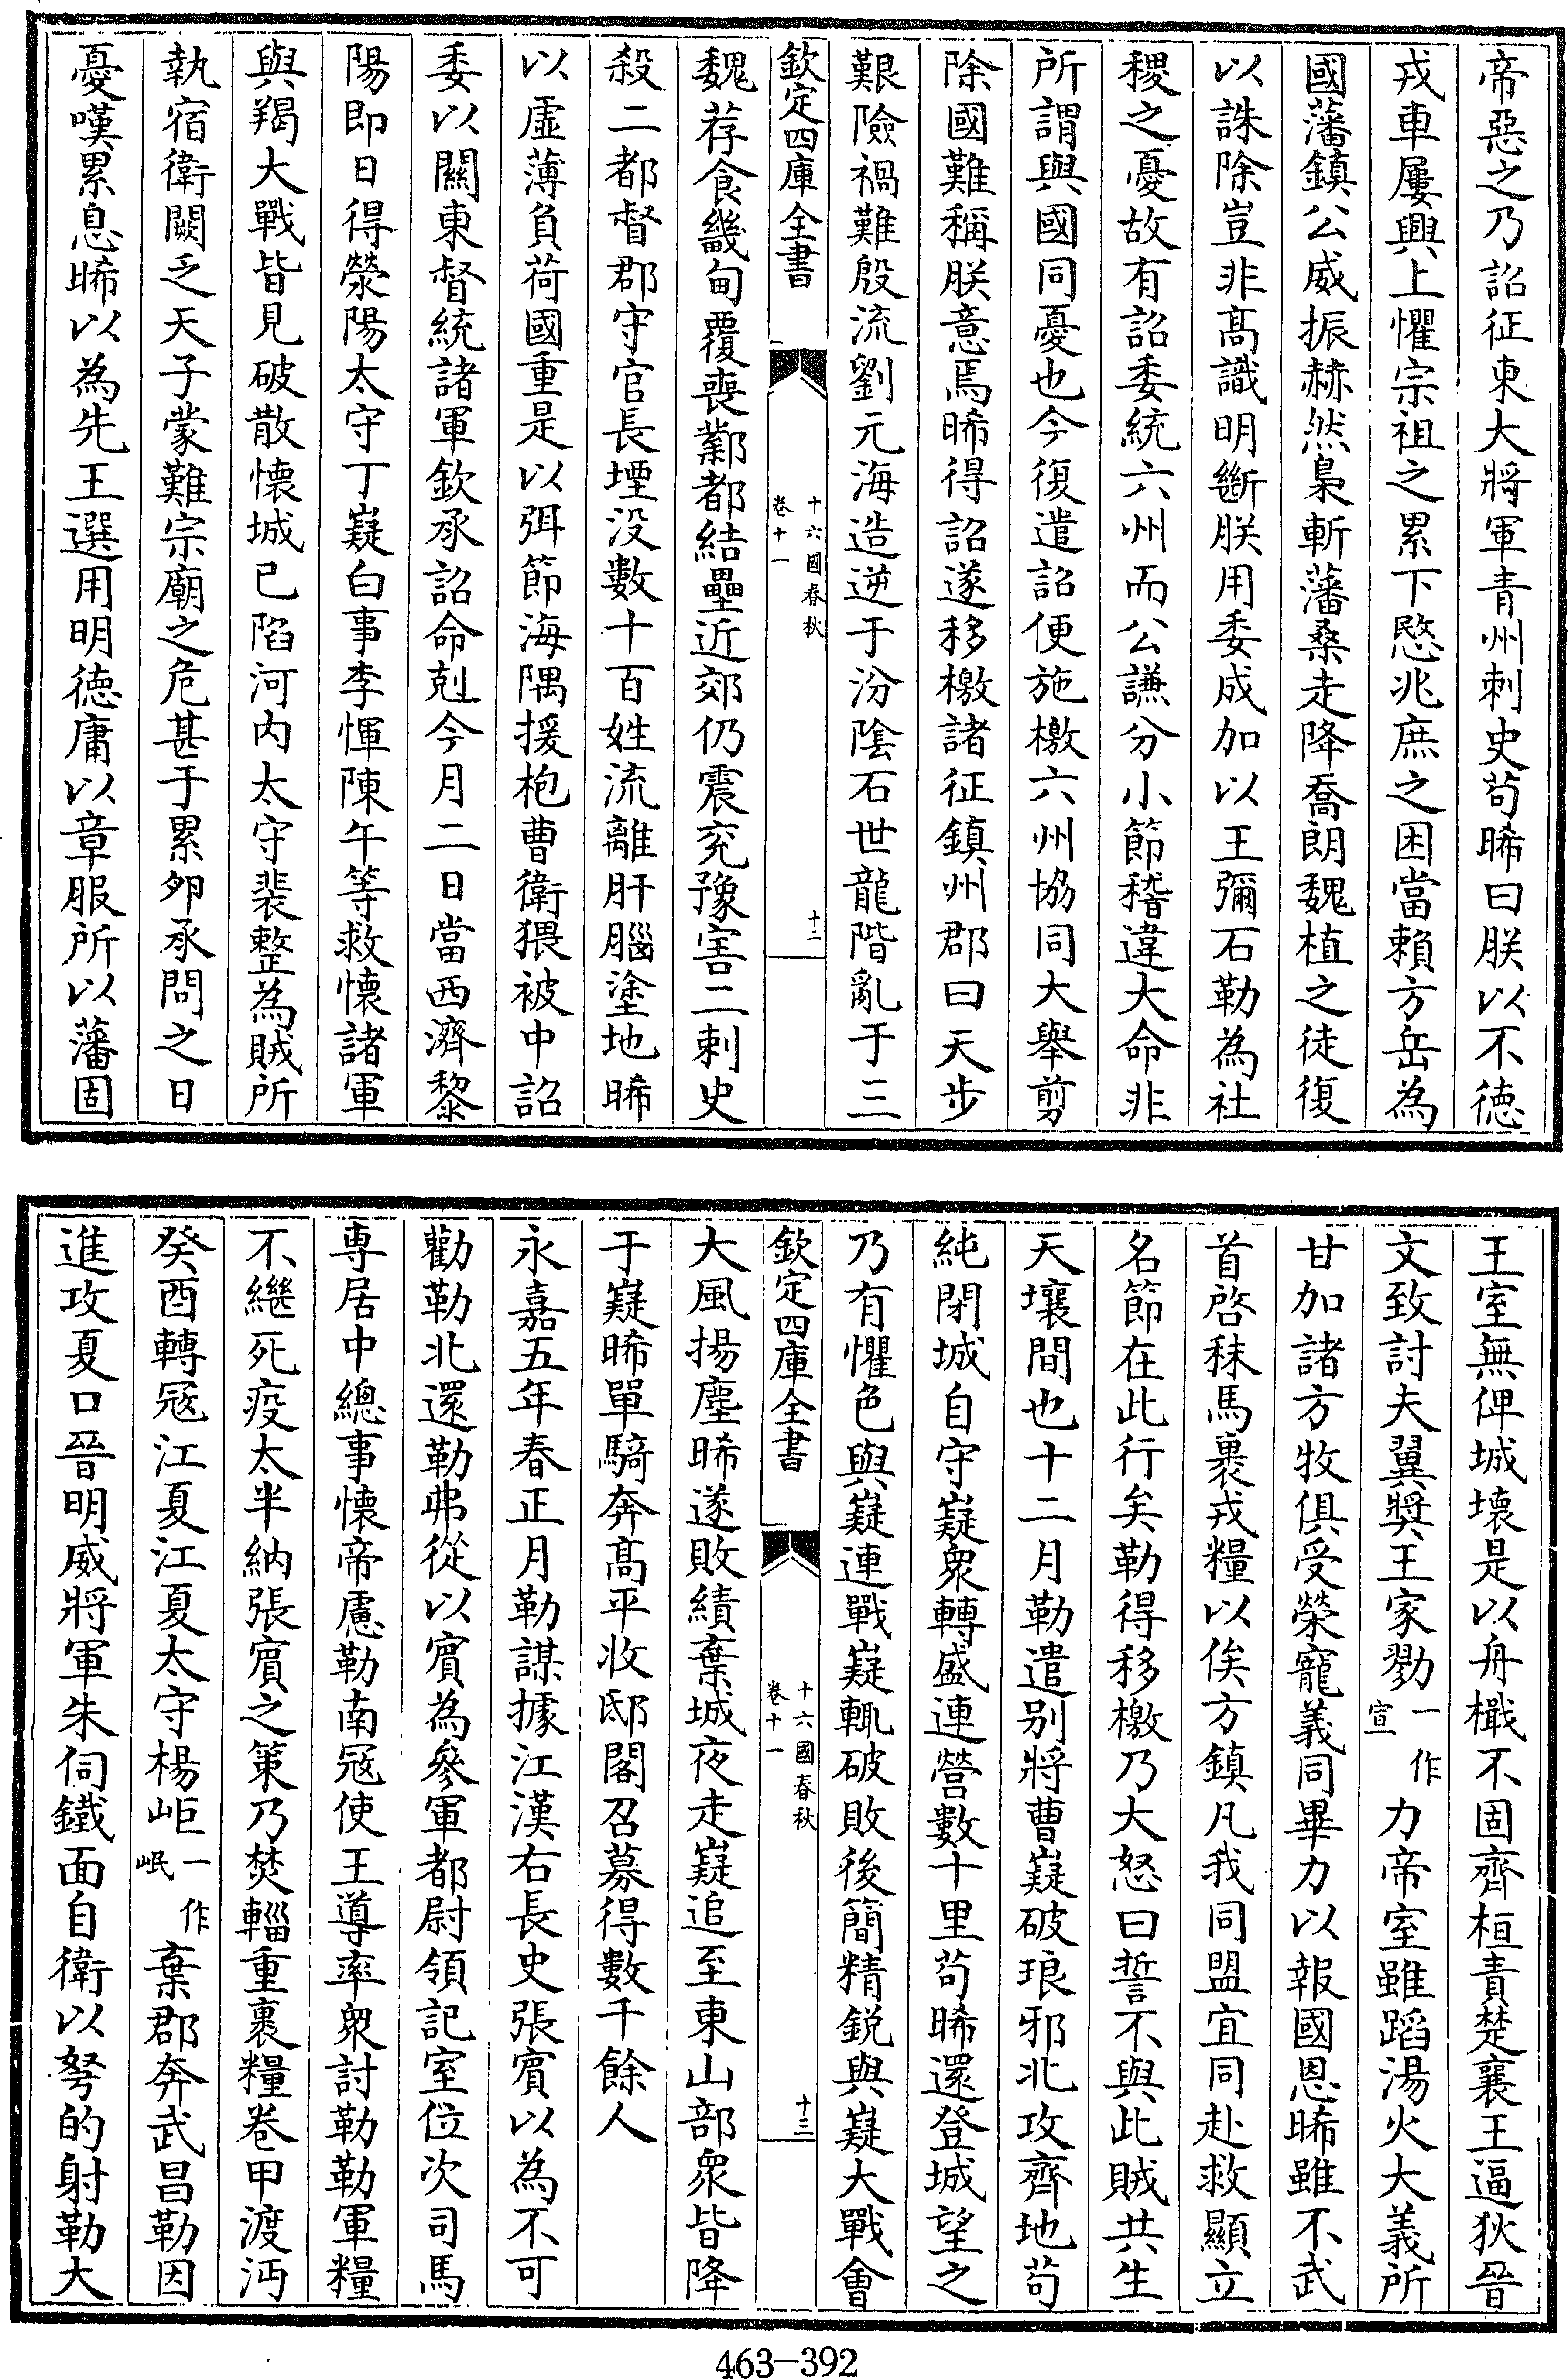 帝惡之乃詔征東大將軍青州刺史苟晞曰朕以不徳
戎車屢興上懼宗祖之累下愍兆庶之困當賴方岳為
國藩鎮公威振赫然梟斬藩桑走降喬朗魏植之徒復
以誅除豈非髙識明斷朕用委成加以王彌石勒為社
稷之憂故有詔委統六州而公謙分小節稽違大命非
所謂與國同憂也今復遣詔便施檄六州協同大舉剪
除國難稱朕意焉晞得詔遂移檄諸征鎮州郡曰天步
艱險禍難殷流劉元海造逆于汾陰石世龍階亂于三
欽定四庫全書
十六國春秋
卷十一
十二
魏荐食畿甸覆喪鄴都結壘近郊仍震兖豫害二刺史
殺二都督郡守官長堙没數十百姓流離肝腦塗地晞
以虛薄負荷國重是以弭節海隅援枹曹衛猥被中詔
委以關東督統諸軍欽承詔命剋今月二日當西濟黎
陽即日得滎陽太守丁嶷白事李惲陳午等救懐諸軍
與羯大戰皆見破散懐城已陷河内太守裴整為賊所
執宿衛闕乏天子蒙難宗廟之危甚于累夘承問之日
憂嘆累息晞以為先王選用明徳庸以章服所以藩固
王室無俾城壊是以舟檝不固齊桓責楚襄王逼狄晉
文致討夫翼奬王家勠一作宣力帝室雖蹈湯火大義所
甘加諸方牧俱受榮寵義同畢力以報國恩晞雖不武
首啓秣馬裹戎糧以俟方鎮凡我同盟宜同赴救顯立
名節在此行矣勒得移檄乃大怒曰誓不與此賊共生
天壤間也十二月勒遣别將曹嶷破琅邪北攻齊地苟
純閉城自守嶷衆轉盛連營數十里苟晞還登城望之
乃有懼色與嶷連戰嶷輒破敗後簡精鋭與嶷大戰會
欽定四庫全書
十六國春秋
卷十一
十三
大風揚塵晞遂敗績棄城夜走嶷追至東山部衆皆降
于嶷晞單騎奔髙平收邸閣召募得數千餘人
永嘉五年春正月勒謀據江漢右長史張賓以為不可
勸勒北還勒弗從以賓為參軍都尉領記室位次司馬
専居中總事懐帝慮勒南冦使王導率衆討勒勒軍糧
不繼死疫太半納張賓之策乃焚輜重裹糧卷甲渡沔
癸酉轉冦江夏江夏太守楊岠一作岷棄郡奔武昌勒因
進攻夏口晉明威將軍朱伺鐵面自衛以弩的射勒大
463-392